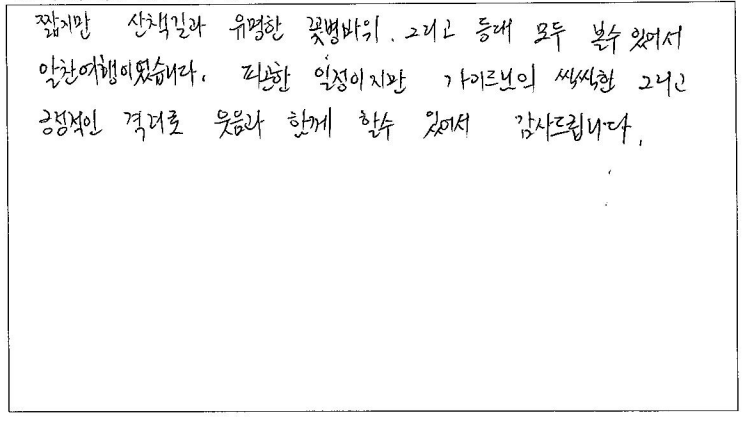 짧지만 산책길과 유명한 꽃병바위. 그리고 등대 모두 볼수 있어서
알찬여행이였습니다. 피곤한 일정이지만 가이드님의 씩씩한 그리고
긍정적인 격려로 웃음과 함께 할수 있어서 감사드립니다.